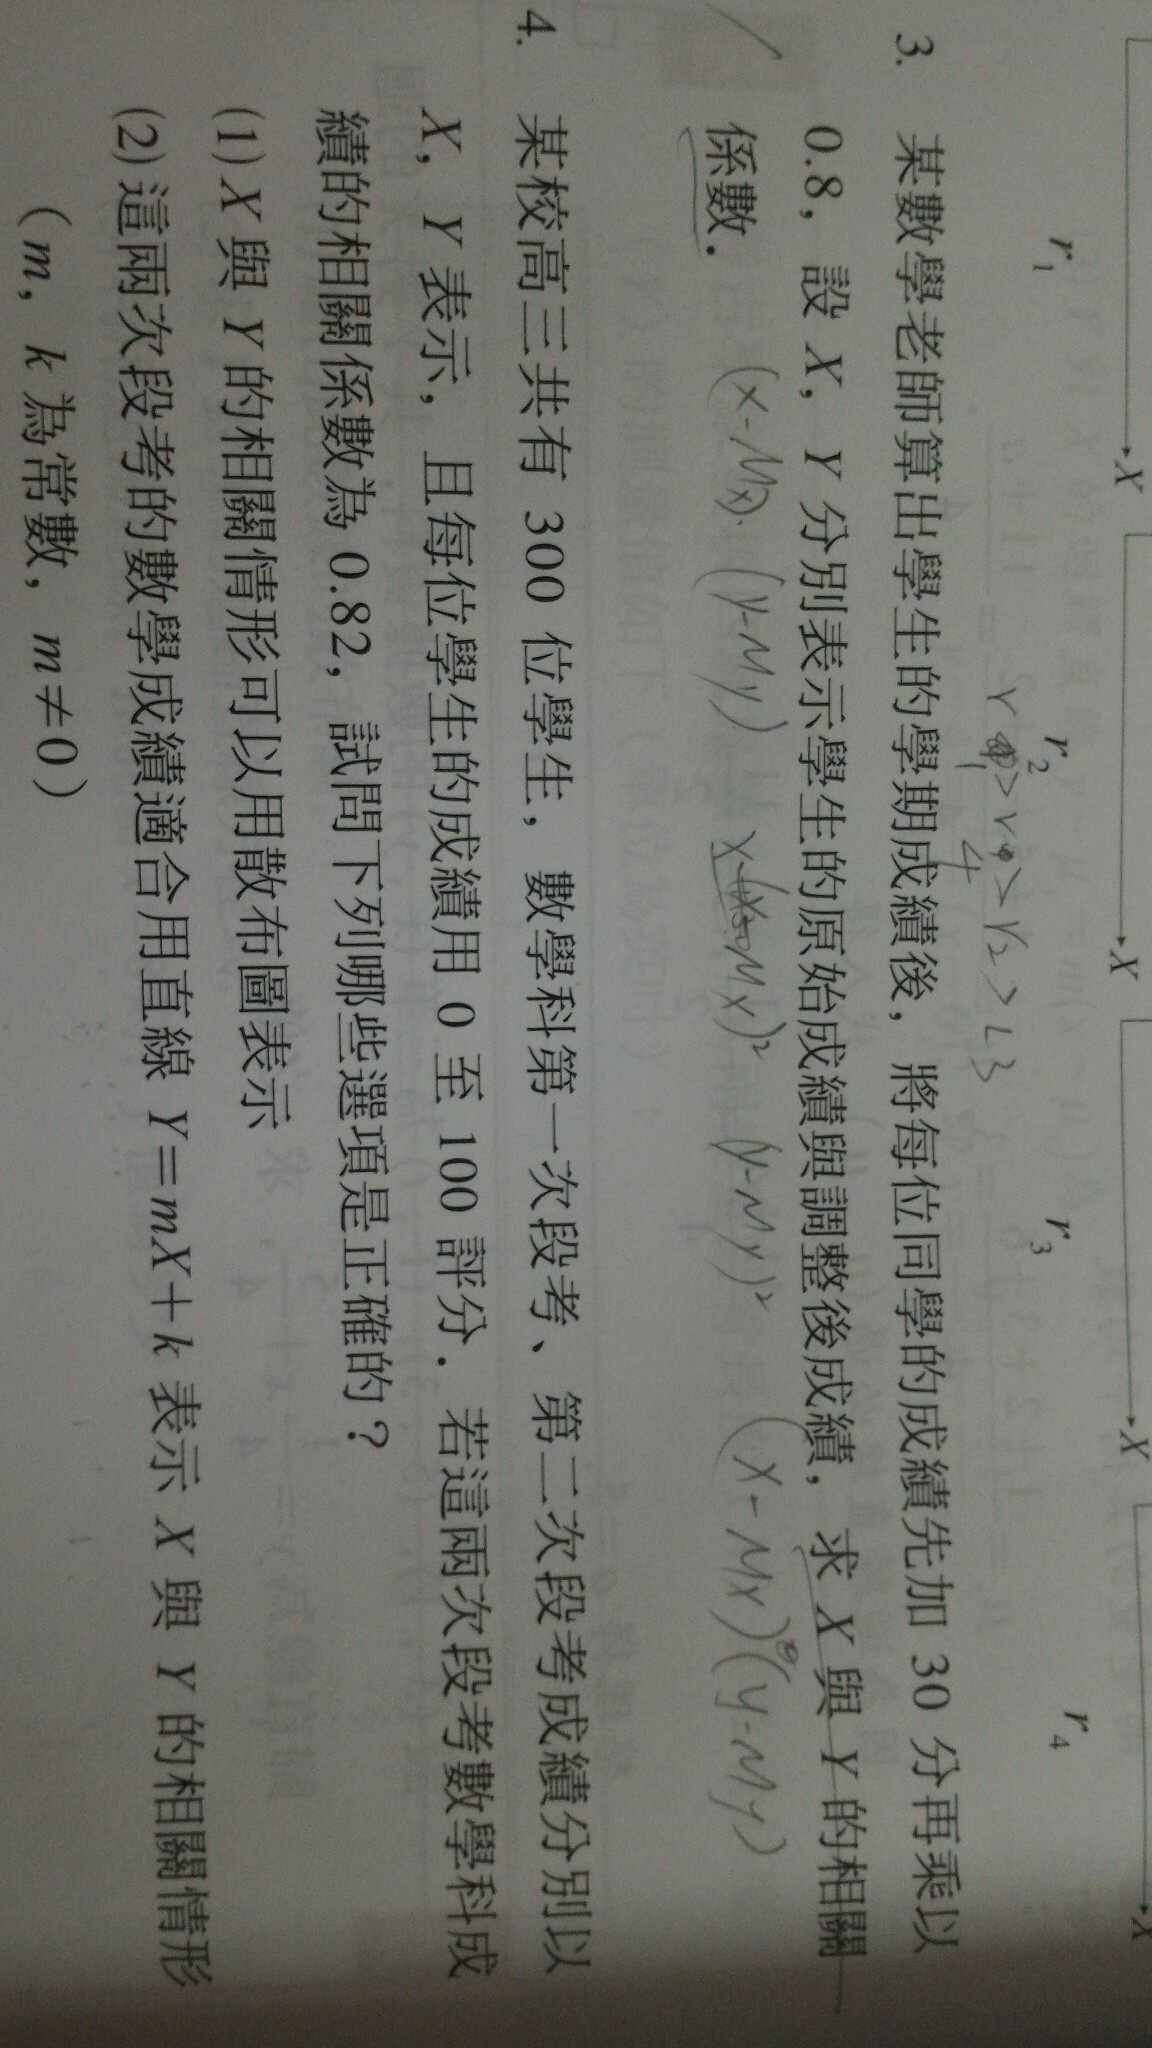 X X X X
r1 r2 r3 r4
3. 某數學老師算出學生的學期成績後，將每位同學的成績先加 30 分再乘以
0.8，設 X，Y 分別表示學生的原始成績與調整後成績，求 X 與 Y 的相關
係數．
(x-Mx)·(y-My) (y-My)² (x-Mx)(y-My)
4. 某校高三共有 300 位學生，數學科第一次段考、第二次段考成績分別以
X，Y 表示，且每位學生的成績用 0 至 100 評分．若這兩次段考數學科成
績的相關係數為 0.82，試問下列哪些選項是正確的？
(1) X 與 Y 的相關情形可以用散布圖表示
(2) 這兩次段考的數學成績適合用直線 Y=mX+k 表示 X 與 Y 的相關情形
（m，k 為常數，m≠0）